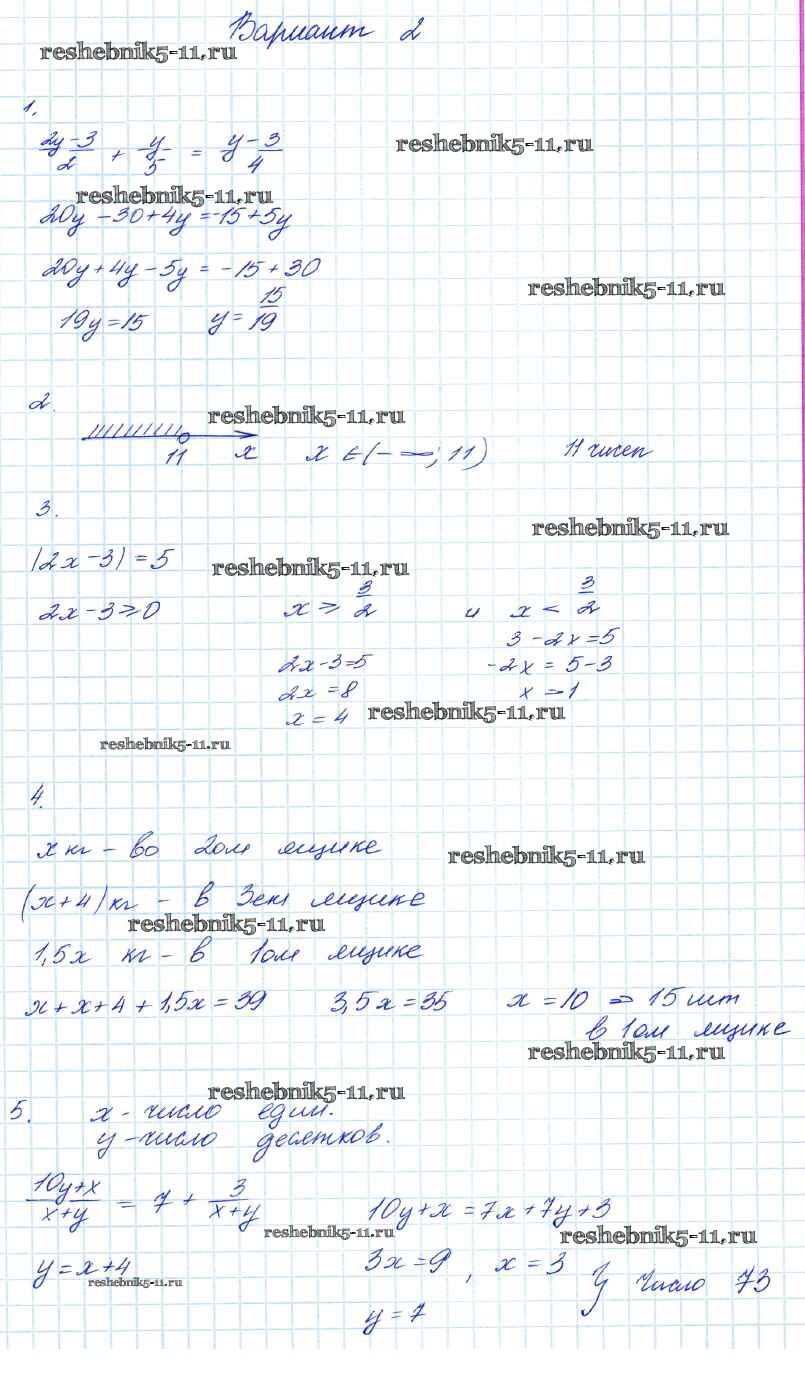 Вариант 2
reshebnik5-11.ru
1.
(2y-3)/2 + y/5 = (y-3)/4
reshebnik5-11.ru
reshebnik5-11.ru
20y-30+4y=-15+5y
20y+4y-5y=-15+30
reshebnik5-11.ru
19y=15 y=15/19
2.
reshebnik5-11.ru
11 x x∈(-∞;11) 11 чисел
3.
reshebnik5-11.ru
|2x-3|=5
reshebnik5-11.ru
2x-3≥0 x≥3/2 и x<3/2
3-2x=5
2x-3=5 -2x=5-3
2x=8 x=-1
x=4
reshebnik5-11.ru
reshebnik5-11.ru
4.
x кг - во 2ом ящике
reshebnik5-11.ru
(x+4) кг - в 3ем ящике
reshebnik5-11.ru
1,5x кг - в 1ом ящике
x+x+4+1,5x=39 3,5x=35 x=10 ⇒ 15 шт
в 1ом ящике
reshebnik5-11.ru
reshebnik5-11.ru
5. x - число един.
y - число десятков.
(10y+x)/(x+y) = 7 + 3/(x+y) 10y+x=7x+7y+3
reshebnik5-11.ru
reshebnik5-11.ru
y=x+4 3x=9, x=3 } число 73
reshebnik5-11.ru
y=7